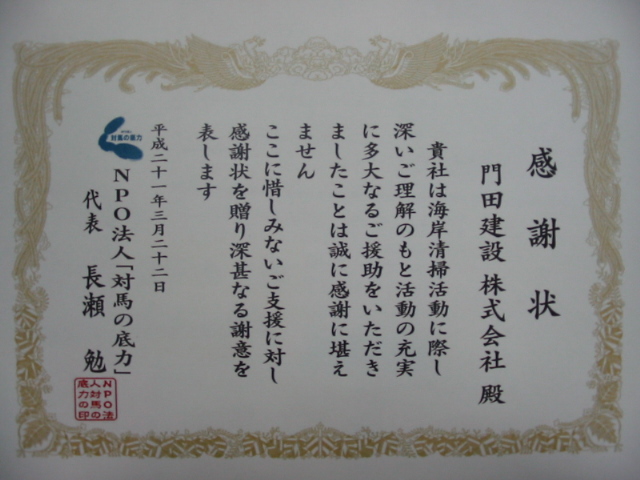 感謝状
門田建設 株式会社 殿
貴社は海岸清掃活動に際し
深いご理解のもと活動の充実
に多大なるご援助をいただき
ましたことは誠に感謝に堪え
ません
ここに惜しみないご支援に対し
感謝状を贈り深甚なる謝意を
表します
平成二十一年三月二十二日
対馬の底力
NPO法人「対馬の底力」
代表 長瀬 勉
NPO法
人対馬の
底力の印